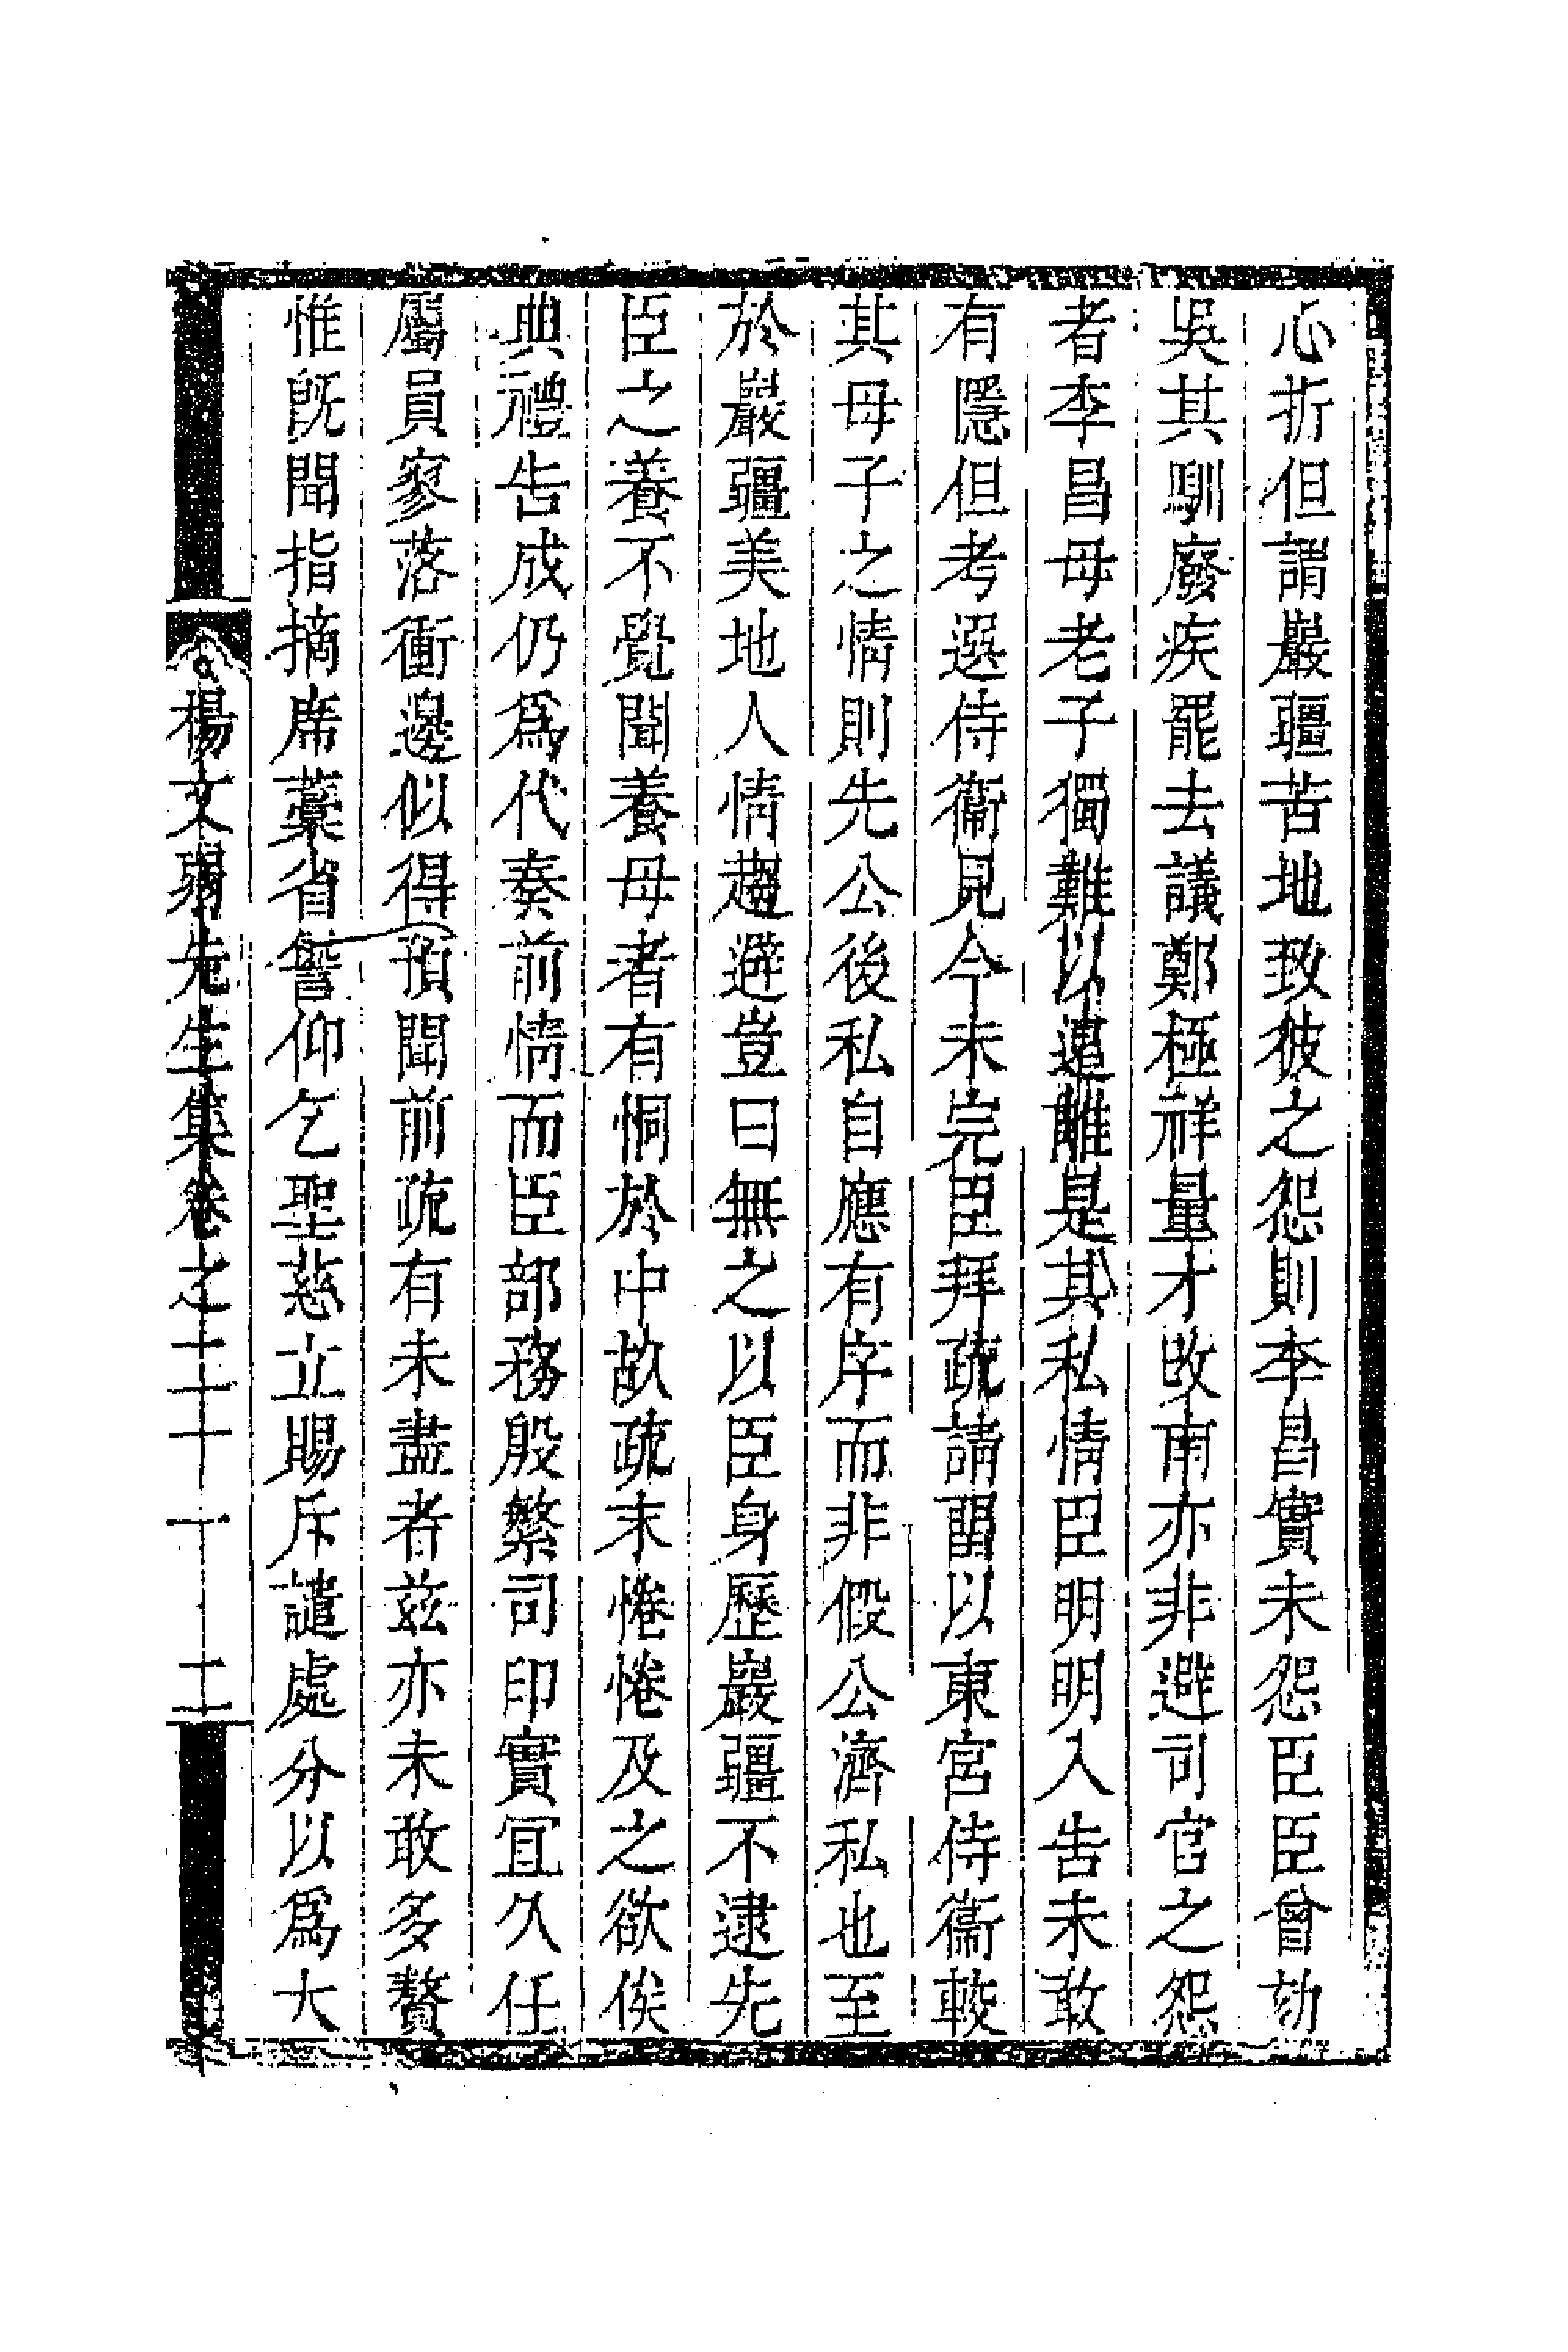 心折但謂巖疆苦地致彼之怨則李昌實未怨臣臣曾劾
吳其馴廢疾罷去議鄭極祥量才改南亦非避司官之怨
者李昌母老子獨難以遠離是其私情臣明明入告未敢
有隱但考選侍衞見今未完臣拜疏請畱以東宮侍衞較
其母子之情則先公後私自應有序而非假公濟私也至
於巖疆美地人情趨避豈曰無之以臣身歷巖疆不逮先
臣之養不覺聞養母者有恫於中故疏末惓惓及之欲俟
典禮告成仍爲代奏前情而臣部務殷繁司印實宜久任
屬員寥落衝邊似得預聞前疏有未盡者茲亦未敢多贅
惟既聞指摘席藳省諐仰乞聖慈立賜斥譴處分以爲大
楊文弱先生集卷之二十 十二